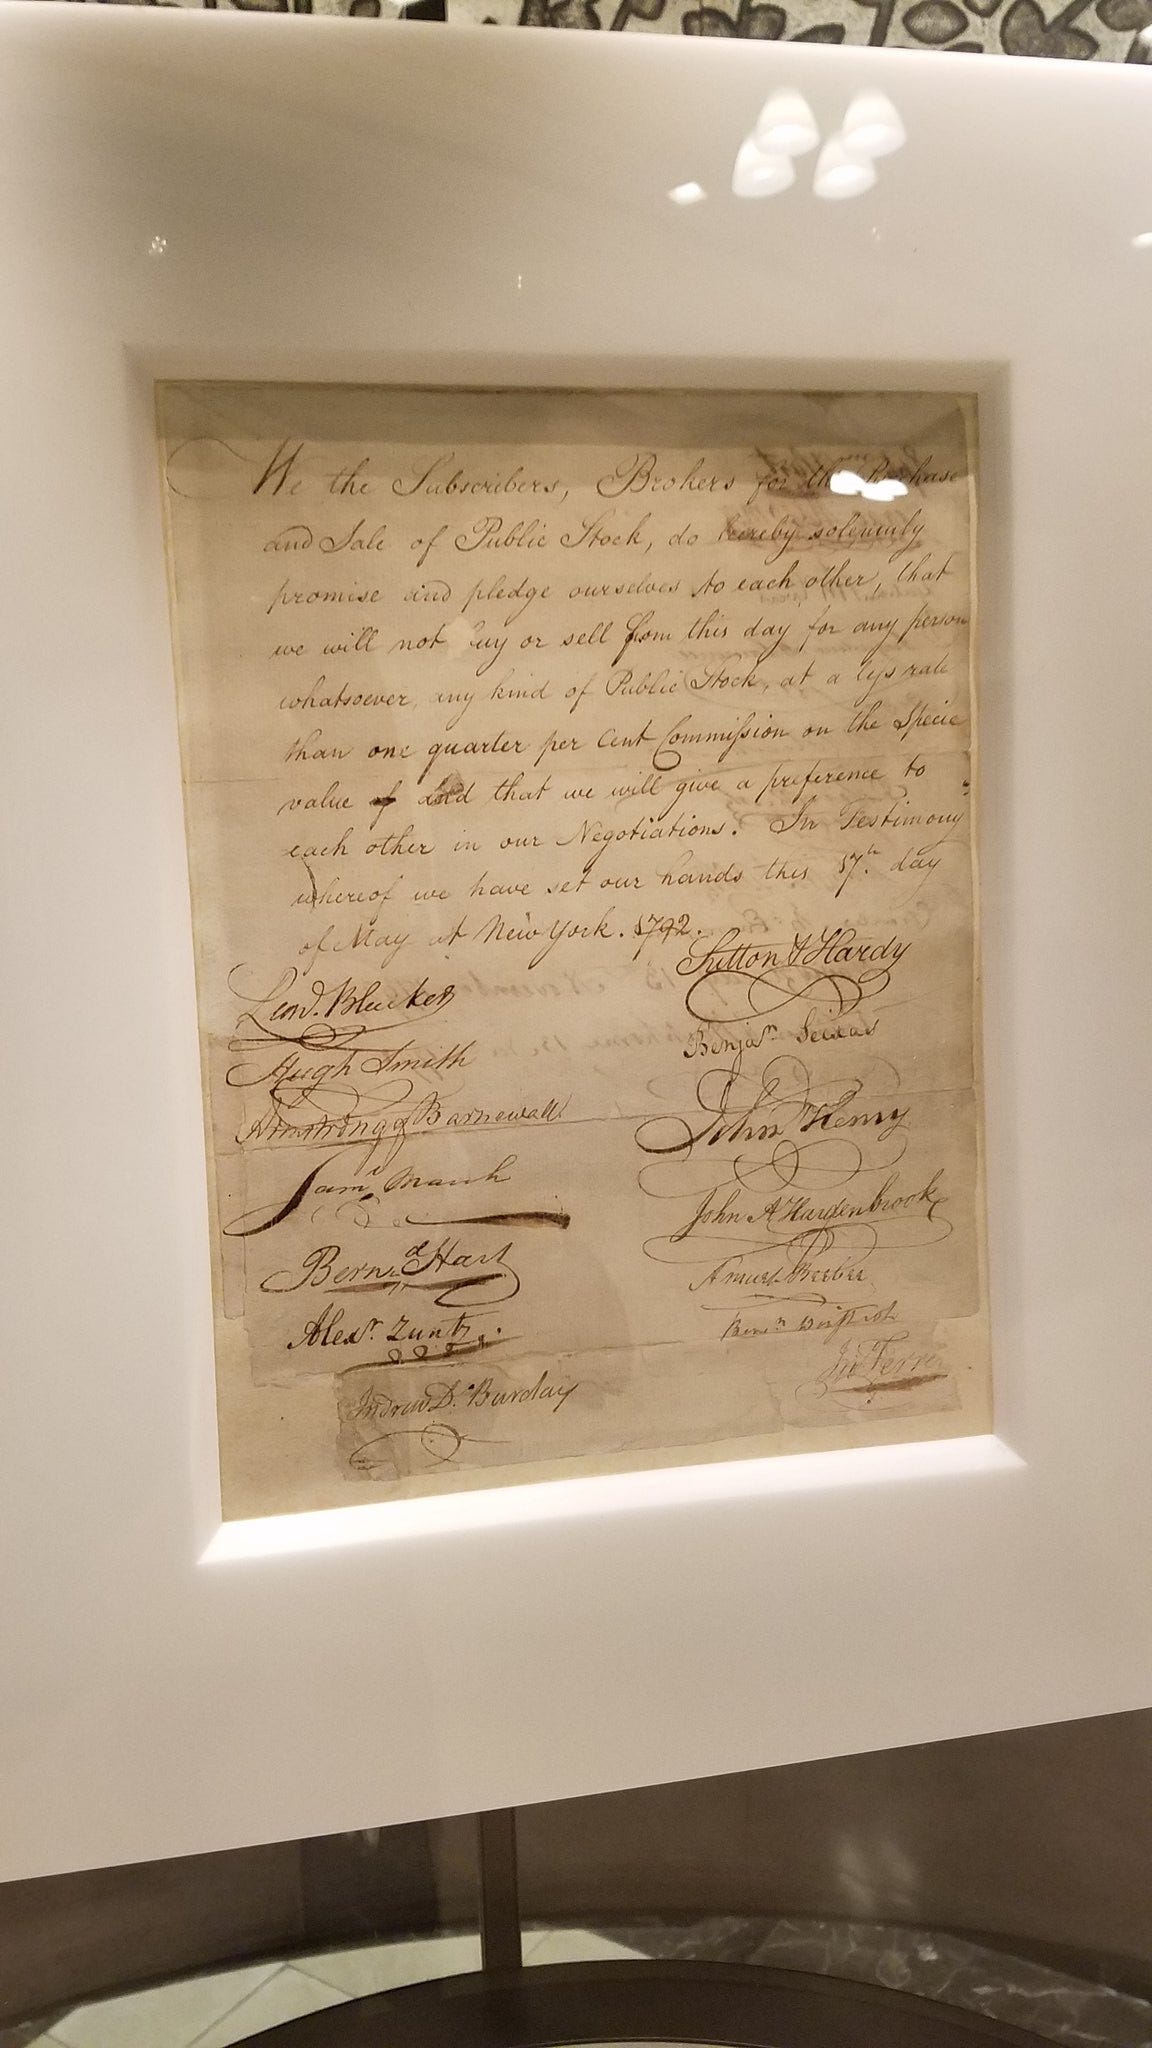 We the Subscribers, Brokers for the Purchase
and Sale of Public Stock, do hereby solemnly
promise and pledge ourselves to each other, that
we will not buy or sell from this day for any person
whatsoever, any kind of Public Stock, at a less rate
than one quarter per Cent Commission on the Specie
value of and that we will give a preference to
each other in our Negotiations. In Testimony
whereof we have set our hands this 17th. day
of May at New York. 1792.
Sutton & Hardy
Leond. Bleecker
Benjan. Seixas
Hugh Smith
John Henry
Armstrong & Barnewall
Saml. March
John A Hardenbrook
Bernd. Hart
Amust Beebee
Alexr. Zuntz
Benjn Winthrop
Jno Ferrers
Andrew D. Barclay